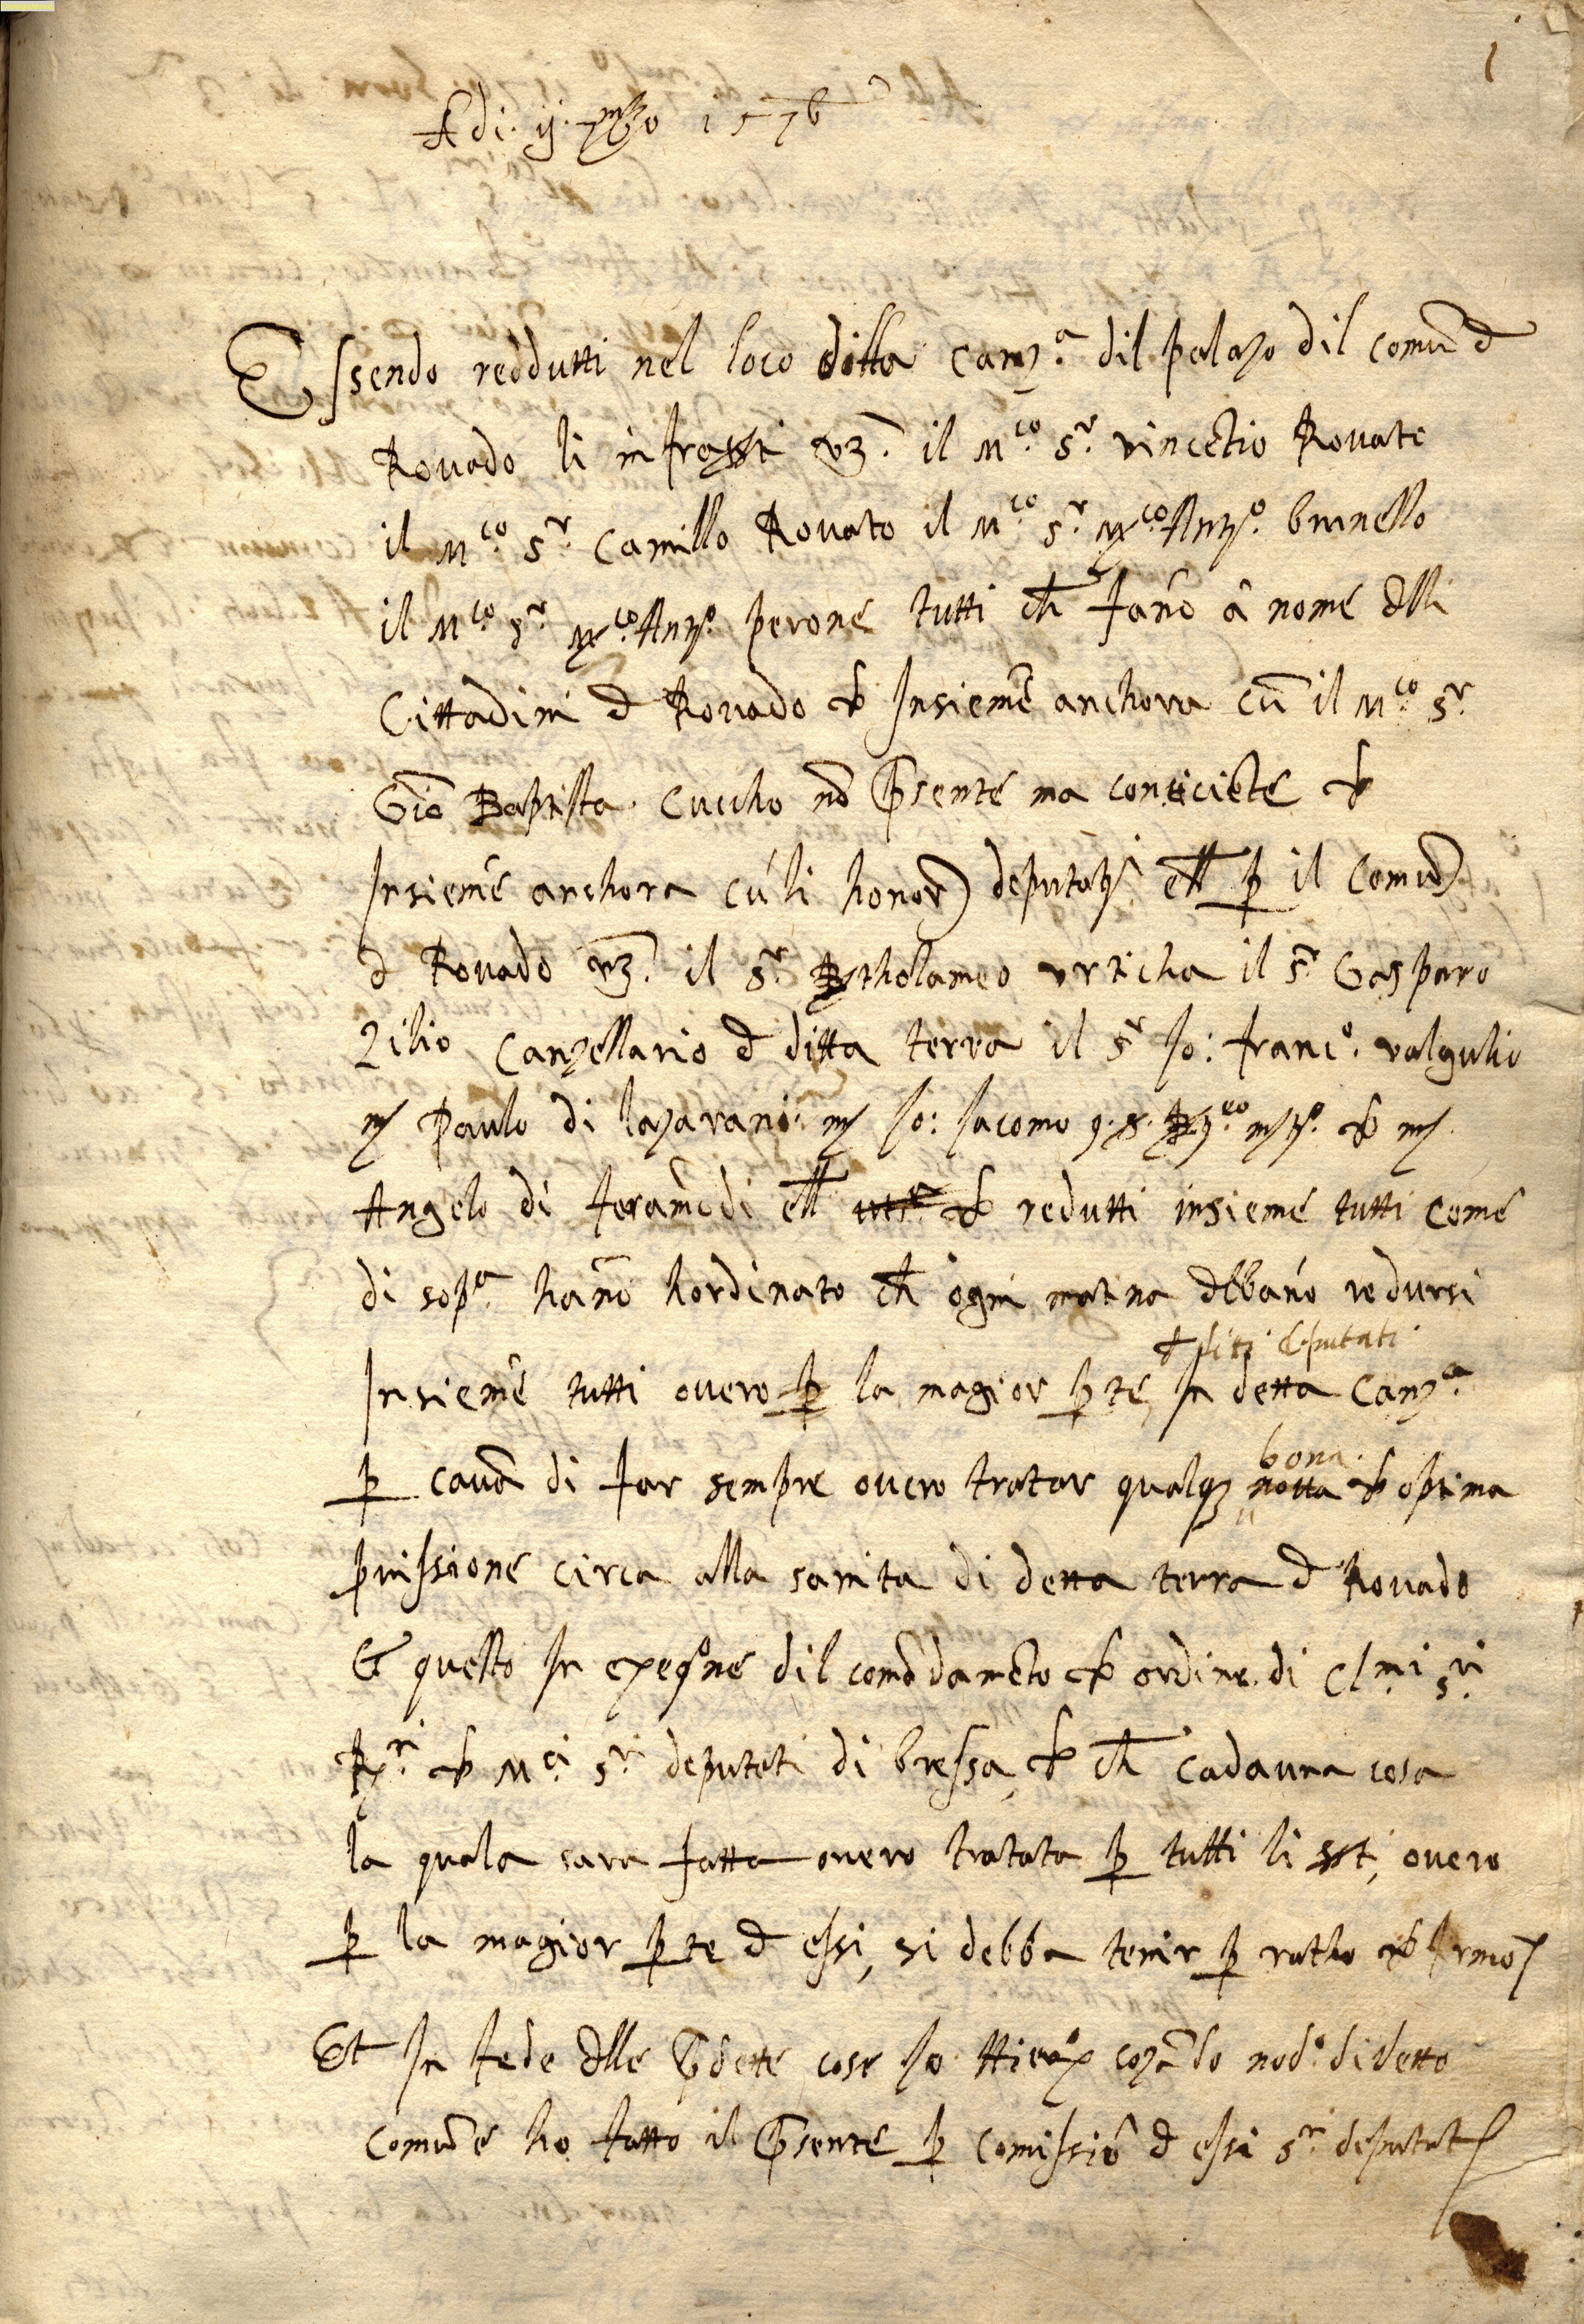 1
Adi. ij. 7mbro 1576
Essendo reddutti nel loco dilla Canz.a dil palazo dil comu d
Rouado li infrasti vz. il M.co s.r vincetio Rouato
il M.co s.r Camillo Rouato il M.co s.r M.co Ant.o brunello
il M.co s.r M.co Ant.o perone tutti ch fano à nome dlli
Cittadini d Rouado & Insieme anchora cu il M.co s.r
Gio Baptista Cuccho no pñsente ma consciete &
Insieme anchora cu li honor) deputati ell p il Comu
d Rouado vz. il s.r Bartholameo vrticha il s.r Gasparo
Zilio Canzellario d ditta terra il s.r Jo: franc.o valgulio
m Paulo di lazaroni m Jo: Jacomo q. & m
Angelo di feramodi ell & redutti insieme tutti come
di sop.a hano hordinato ch ogni matina dbbano redursi
d ditti deputati
Insieme tutti ouero p la magior pte, In detta Canz.a
bona
p causa di far sempre ouero tratar qualq3 notta & optima
puissione circa alla sanita di detta terra d Rouado
& questo In exeq.ne dil comadameto & ordine di Cl.mi s.ri
R.ri & M.ci s.ri deputati di bressa, & ch cadauna cosa
la quala sara fatta ouero tratata p tutti li sti, ouero
p la magior pte d essi, si debba tenir p ratho & firmo
Et In fede dlle pdette cose Jo Hier.o cozado nod.o di detto
comune ho fatto il pñsente p comissio d essi s.ri deputati